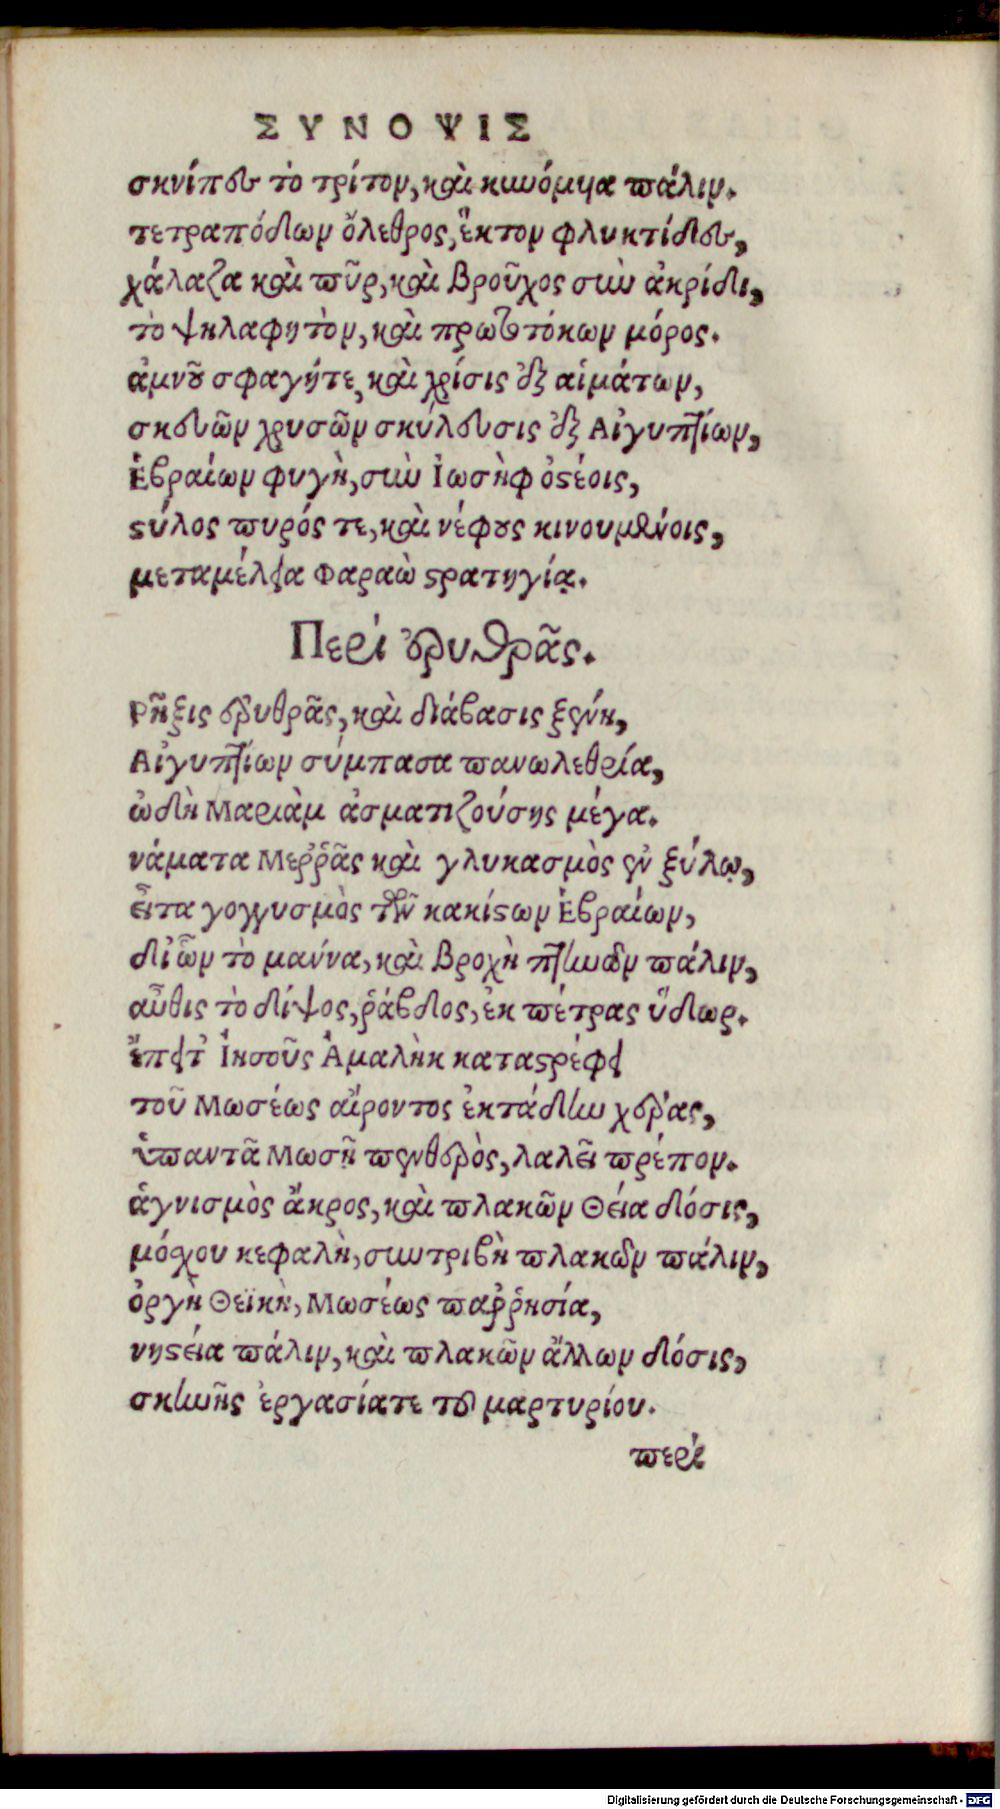 ΣΥΝΟΨΙΣ
σκνίπες τὸ τρίτον, καὶ κυνόμυα πάλιν.
τετραπόδων ὄλεθρος, ἕκτον φλυκτίδες,
χάλαζα καὶ πῦρ, καὶ βροῦχος σὺν ἀκρίδι,
τὸ ψηλαφητὸν, καὶ πρωτοτόκων μόρος.
ἀμνοῦ σφαγήτε, καὶ χρίσις ἐξ αἱμάτων,
σκευῶν χρυσῶν σκύλευσις ἐξ Αἰγυπτίων,
Ἑβραίων φυγὴ, σὺν Ἰωσὴφ ὀστέοις,
στύλος πυρός τε, καὶ νέφους κινουμένοις,
μεταμέλεια Φαραὼ στρατηγίᾳ.
Περὶ ἐρυθρᾶς.
Ῥῆξις ἐρυθρᾶς, καὶ διάβασις ξένη,
Αἰγυπτίων σύμπασα πανωλεθρία,
ὠδὴ Μαριὰμ ἀσματιζούσης μέγα.
νάματα Μεῤῥᾶς καὶ γλυκασμὸς ἐν ξύλῳ,
εἶτα γογγυσμὸς τῶν κακίστων Ἑβραίων,
δι' ὧν τὸ μάννα, καὶ βροχὴ πτηνῶν πάλιν,
αὖθις τὸ δίψος, ῥάβδος, ἐκ πέτρας ὕδωρ.
ἔπειτ' Ἰησοῦς Ἀμαλὴκ καταστρέφει
τοῦ Μωσέως αἴροντος ἐκτάδην χέρας,
ὑπαντᾶ Μωσῇ πενθερὸς, λαλεῖ πρέπον.
ἁγνισμὸς ἄκρος, καὶ πλακῶν Θεία δόσις,
μόσχου κεφαλὴ, συντριβὴ πλακῶν πάλιν,
ὀργὴ Θεϊκὴ, Μωσέως παῤῥησία,
νηστεία πάλιν, καὶ πλακῶν ἄλλων δόσις,
σκηνῆς ἐργασίατε τοῦ μαρτυρίου.
περὶ
Digitalisierung gefördert durch die Deutsche Forschungsgemeinschaft - DFG